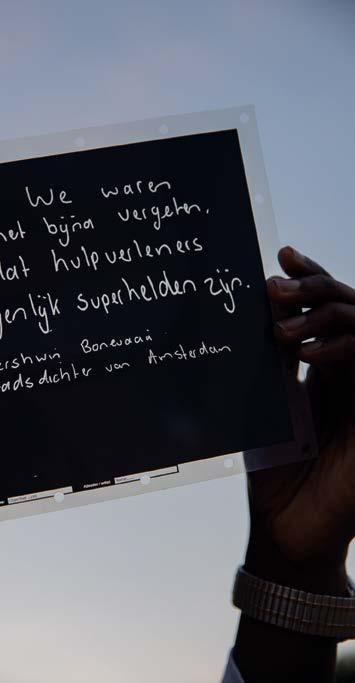 We waren
het bijna vergeten,
dat hulpverleners
genlijk superhelden zijn.
ershwin Bonevacia
adsdichter van Amsterdam